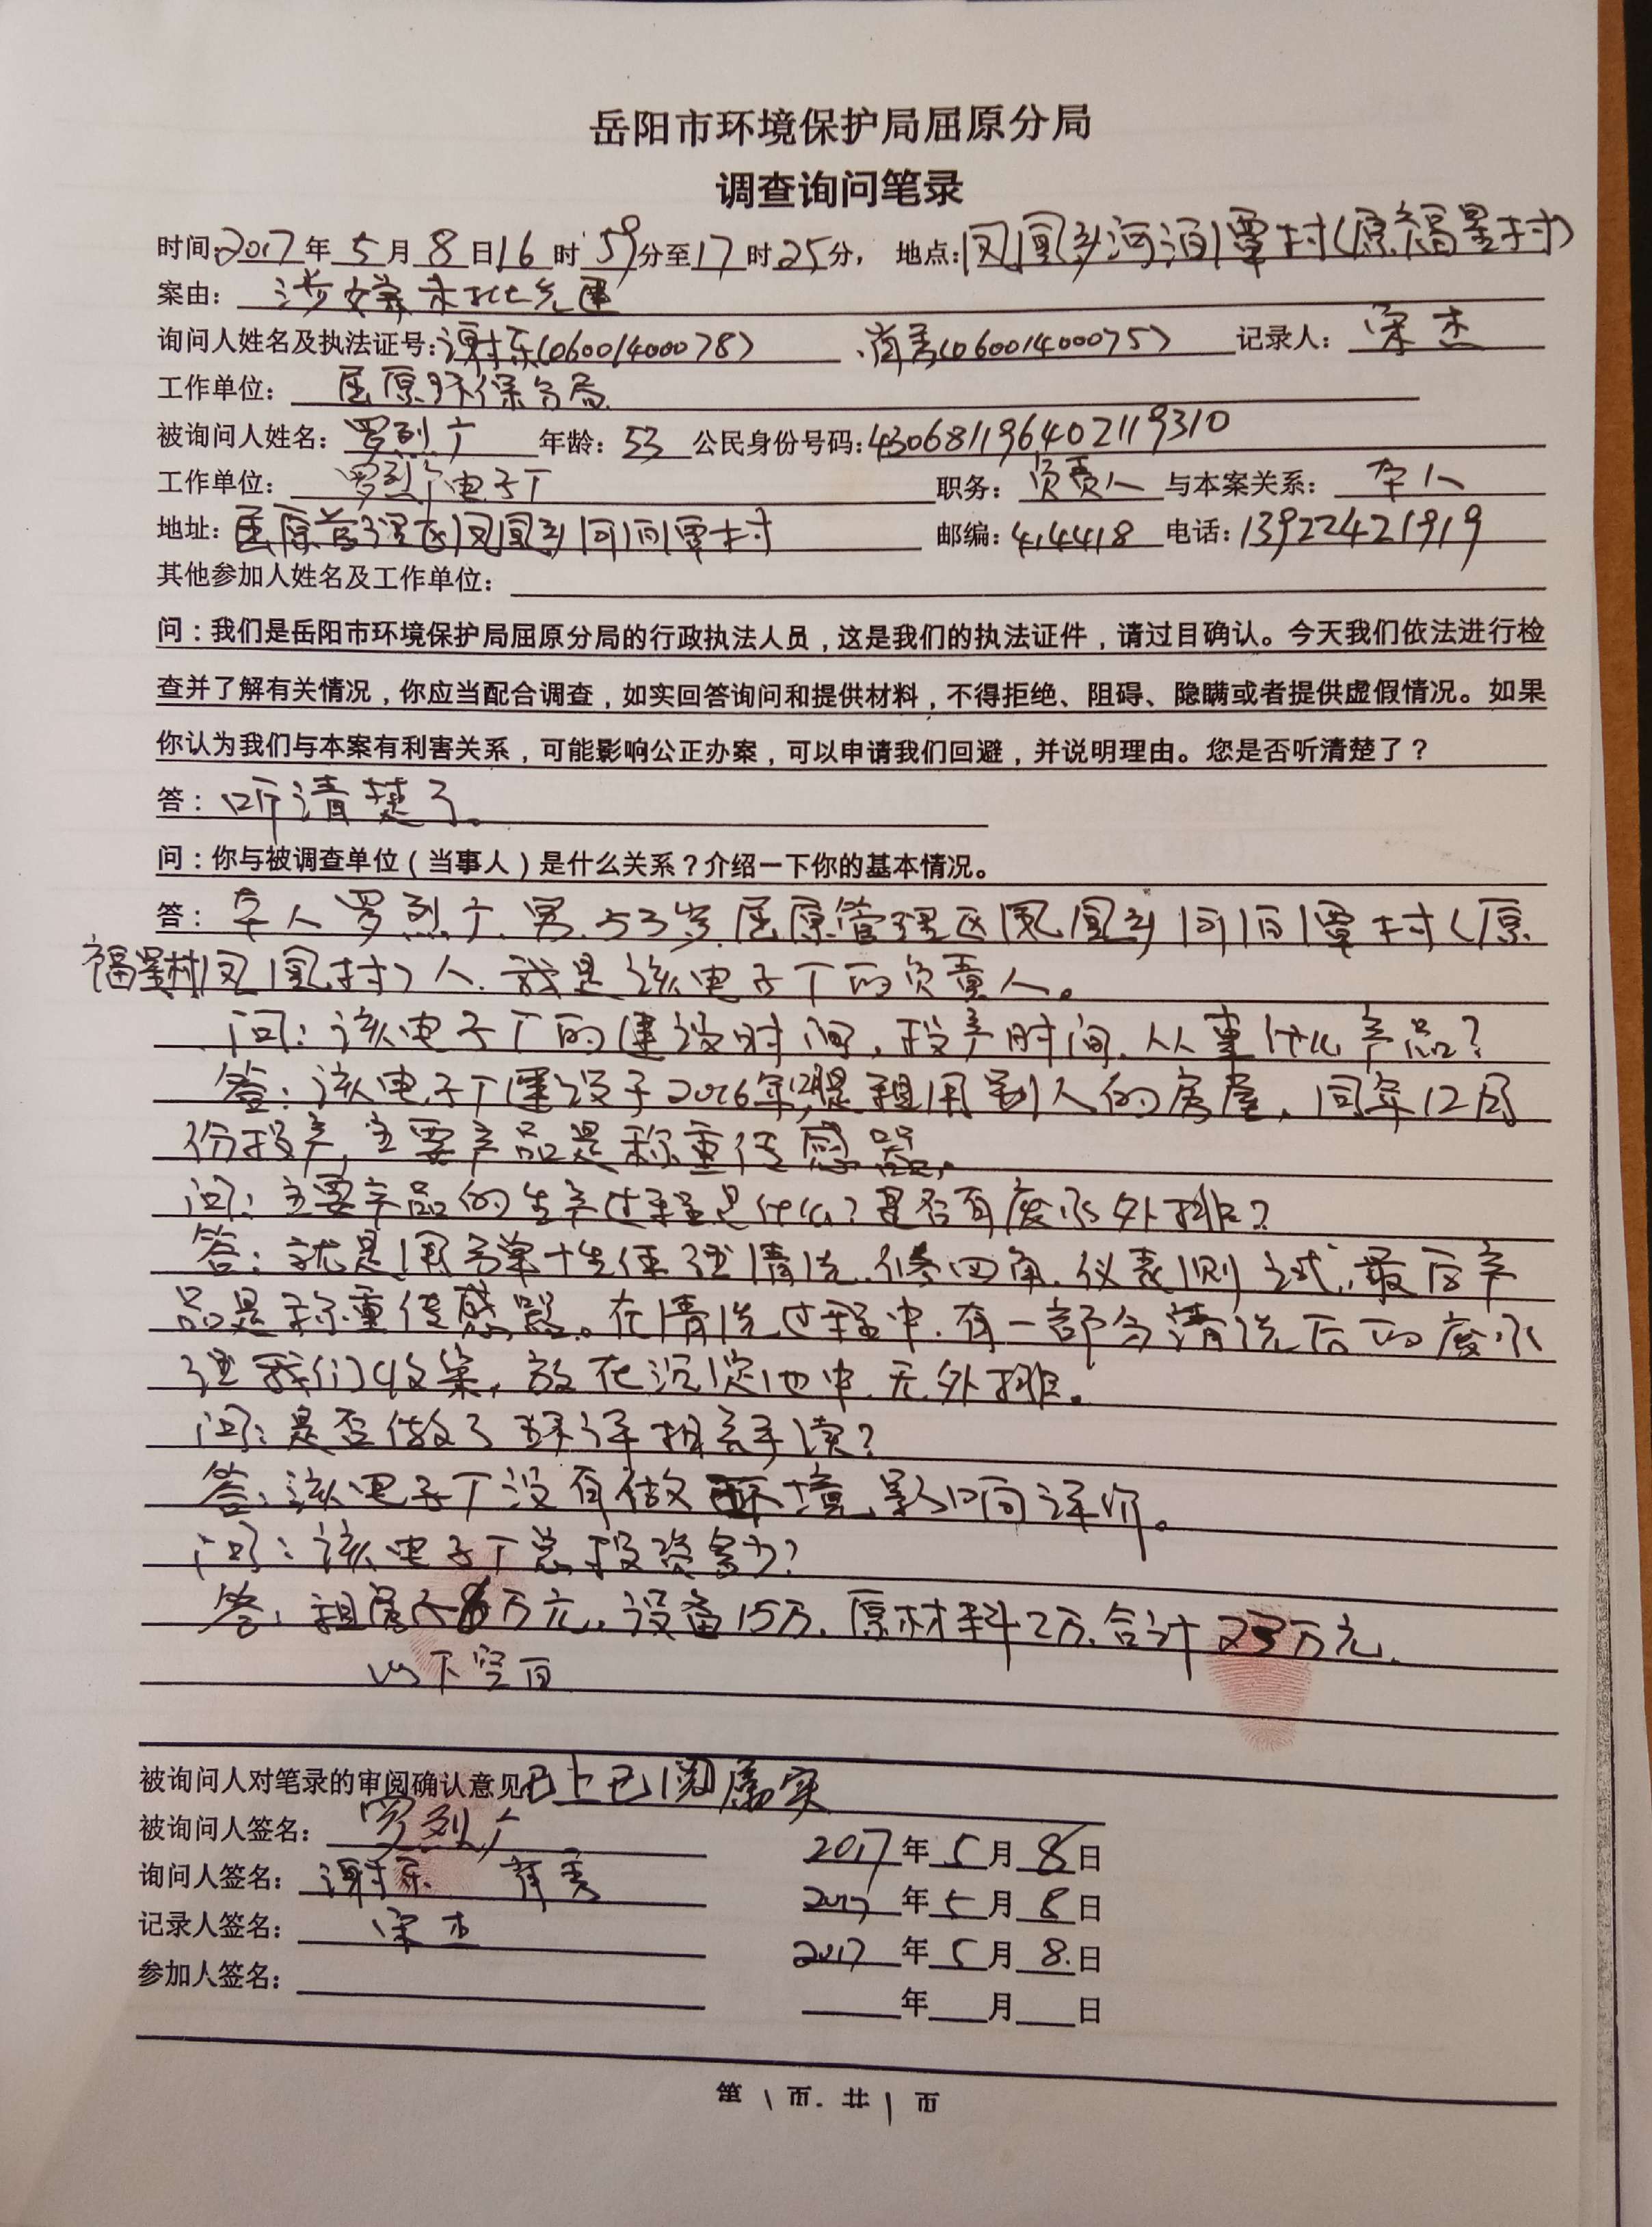 岳阳市环境保护局屈原分局
调查询问笔录
时间:2017年5月8日16时59分至17时25分， 地点:凤凰乡河泊潭村(原福星村)
案由: 涉嫌未批先建
询问人姓名及执法证号:谢乐(06001400078) 、肖秀(06001400075) 记录人: 宋杰
工作单位: 屈原环保分局
被询问人姓名: 罗烈广 年龄: 53 公民身份号码:430681196402119310
工作单位: 罗烈广电子厂 职务: 负责人 与本案关系: 本人
地址: 屈原管理区凤凰乡河泊潭村 邮编: 414418 电话:13922421919
其他参加人姓名及工作单位:
问：我们是岳阳市环境保护局屈原分局的行政执法人员，这是我们的执法证件，请过目确认。今天我们依法进行检
查并了解有关情况，你应当配合调查，如实回答询问和提供材料，不得拒绝、阻碍、隐瞒或者提供虚假情况。如果
你认为我们与本案有利害关系，可能影响公正办案，可以申请我们回避，并说明理由。您是否听清楚了？
答: 听清楚了。
问：你与被调查单位（当事人）是什么关系？介绍一下你的基本情况。
答: 本人罗烈广、男、53岁、屈原管理区凤凰乡河泊潭村(原
福星村凤凰村)人、我是该电子厂的负责人。
问：该电子厂的建设时间，投产时间、从事什么产品？
答：该电子厂建设于2016年12月是租用别人的房屋，同年12月
份投产，主要产品是称重传感器。
问：主要产品的生产过程是什么？是否有废水外排？
答：就是用弹性体经清洗、修四角、仪表测试、最后产
品是称重传感器。在清洗过程中、有一部分清洗后的废水
经我们收集，放在沉淀池中、无外排。
问：是否做了环评相关手续？
答：该电子厂没有做环境影响评价。
问：该电子厂总投资多少？
答：租房6万元、设备15万、原材料2万、合计23万元、
以下空白
被询问人对笔录的审阅确认意见 已上已阅属实
被询问人签名: 罗烈广 2017年5月8日
询问人签名: 谢乐 肖秀 2017年5月8日
记录人签名: 宋杰 2017年5月8日
参加人签名: 年 月 日
第1页.共1页